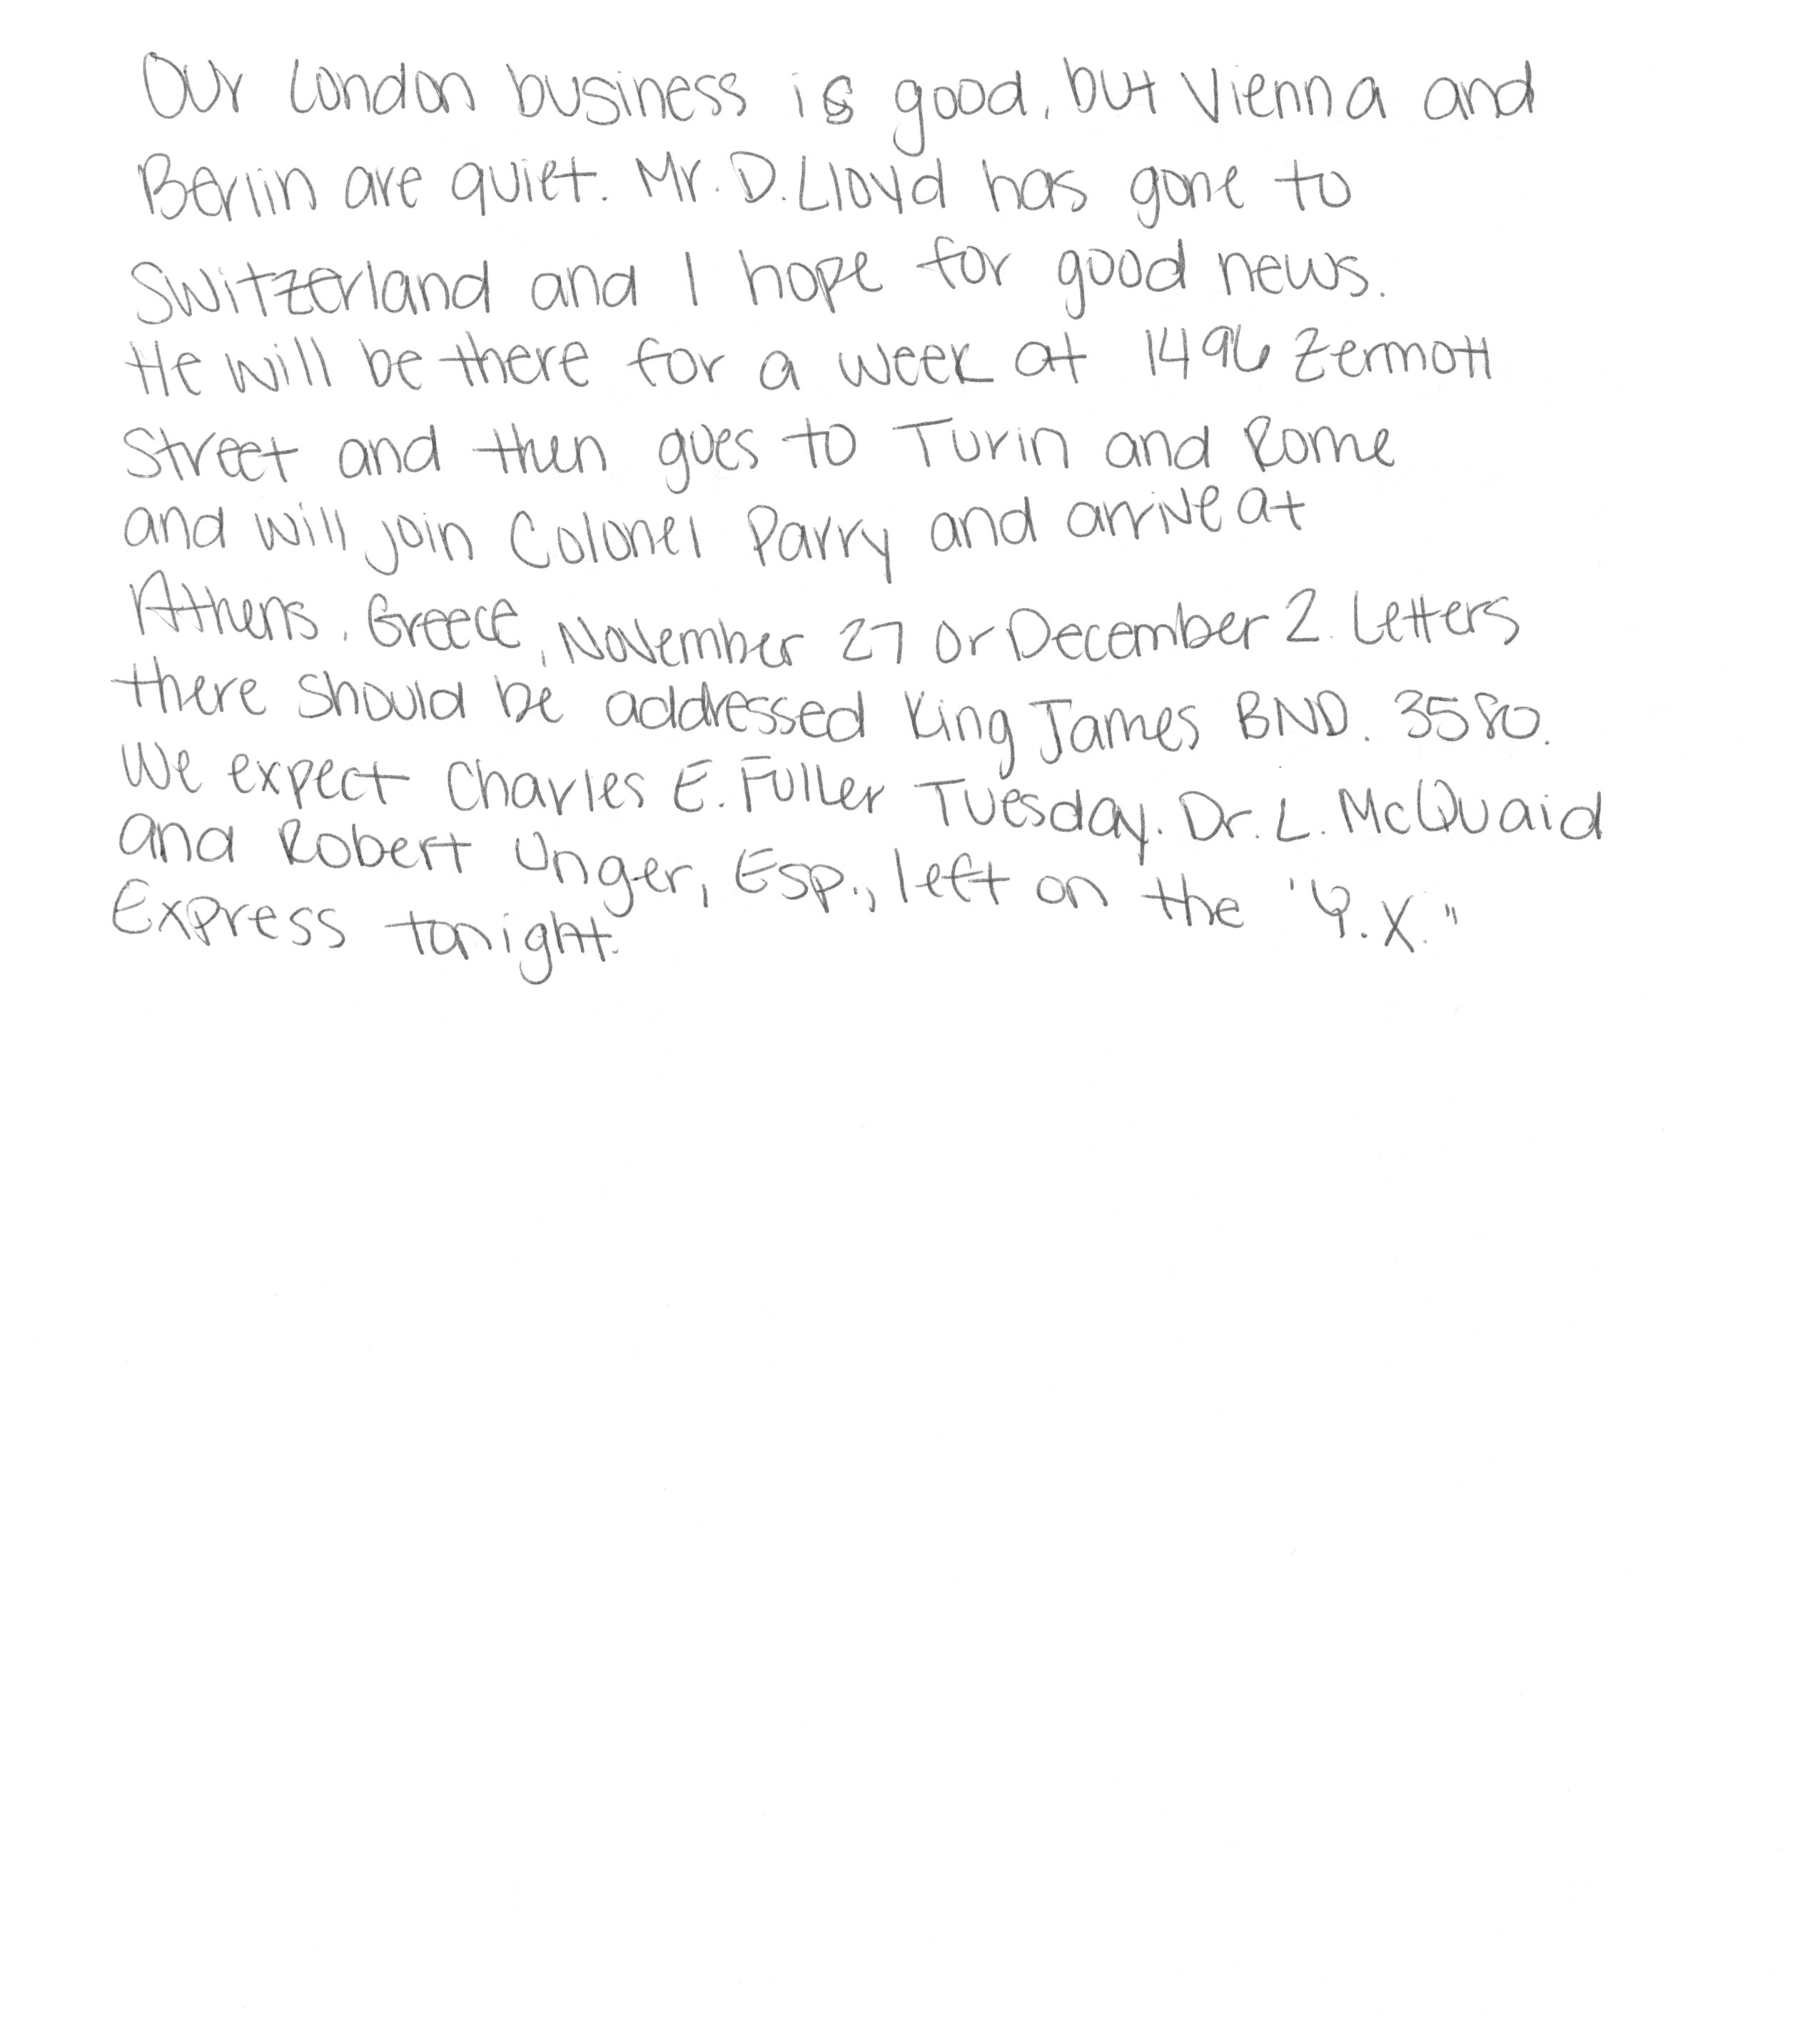 Our London business is good, but Vienna and
Berlin are quiet. Mr. D. Lloyd has gone to
Switzerland and I hope for good news.
He will be there for a week at 1496 Zermott
Street and then goes to Turin and Rome
and will join Colonel Parry and arrive at
Athens, Greece, November 27 or December 2. Letters
there should be addressed King James BND. 3580.
We expect Charles E. Fuller Tuesday. Dr. L. McQuaid
and Robert Unger, Esp., left on the "Y.X."
Express tonight.